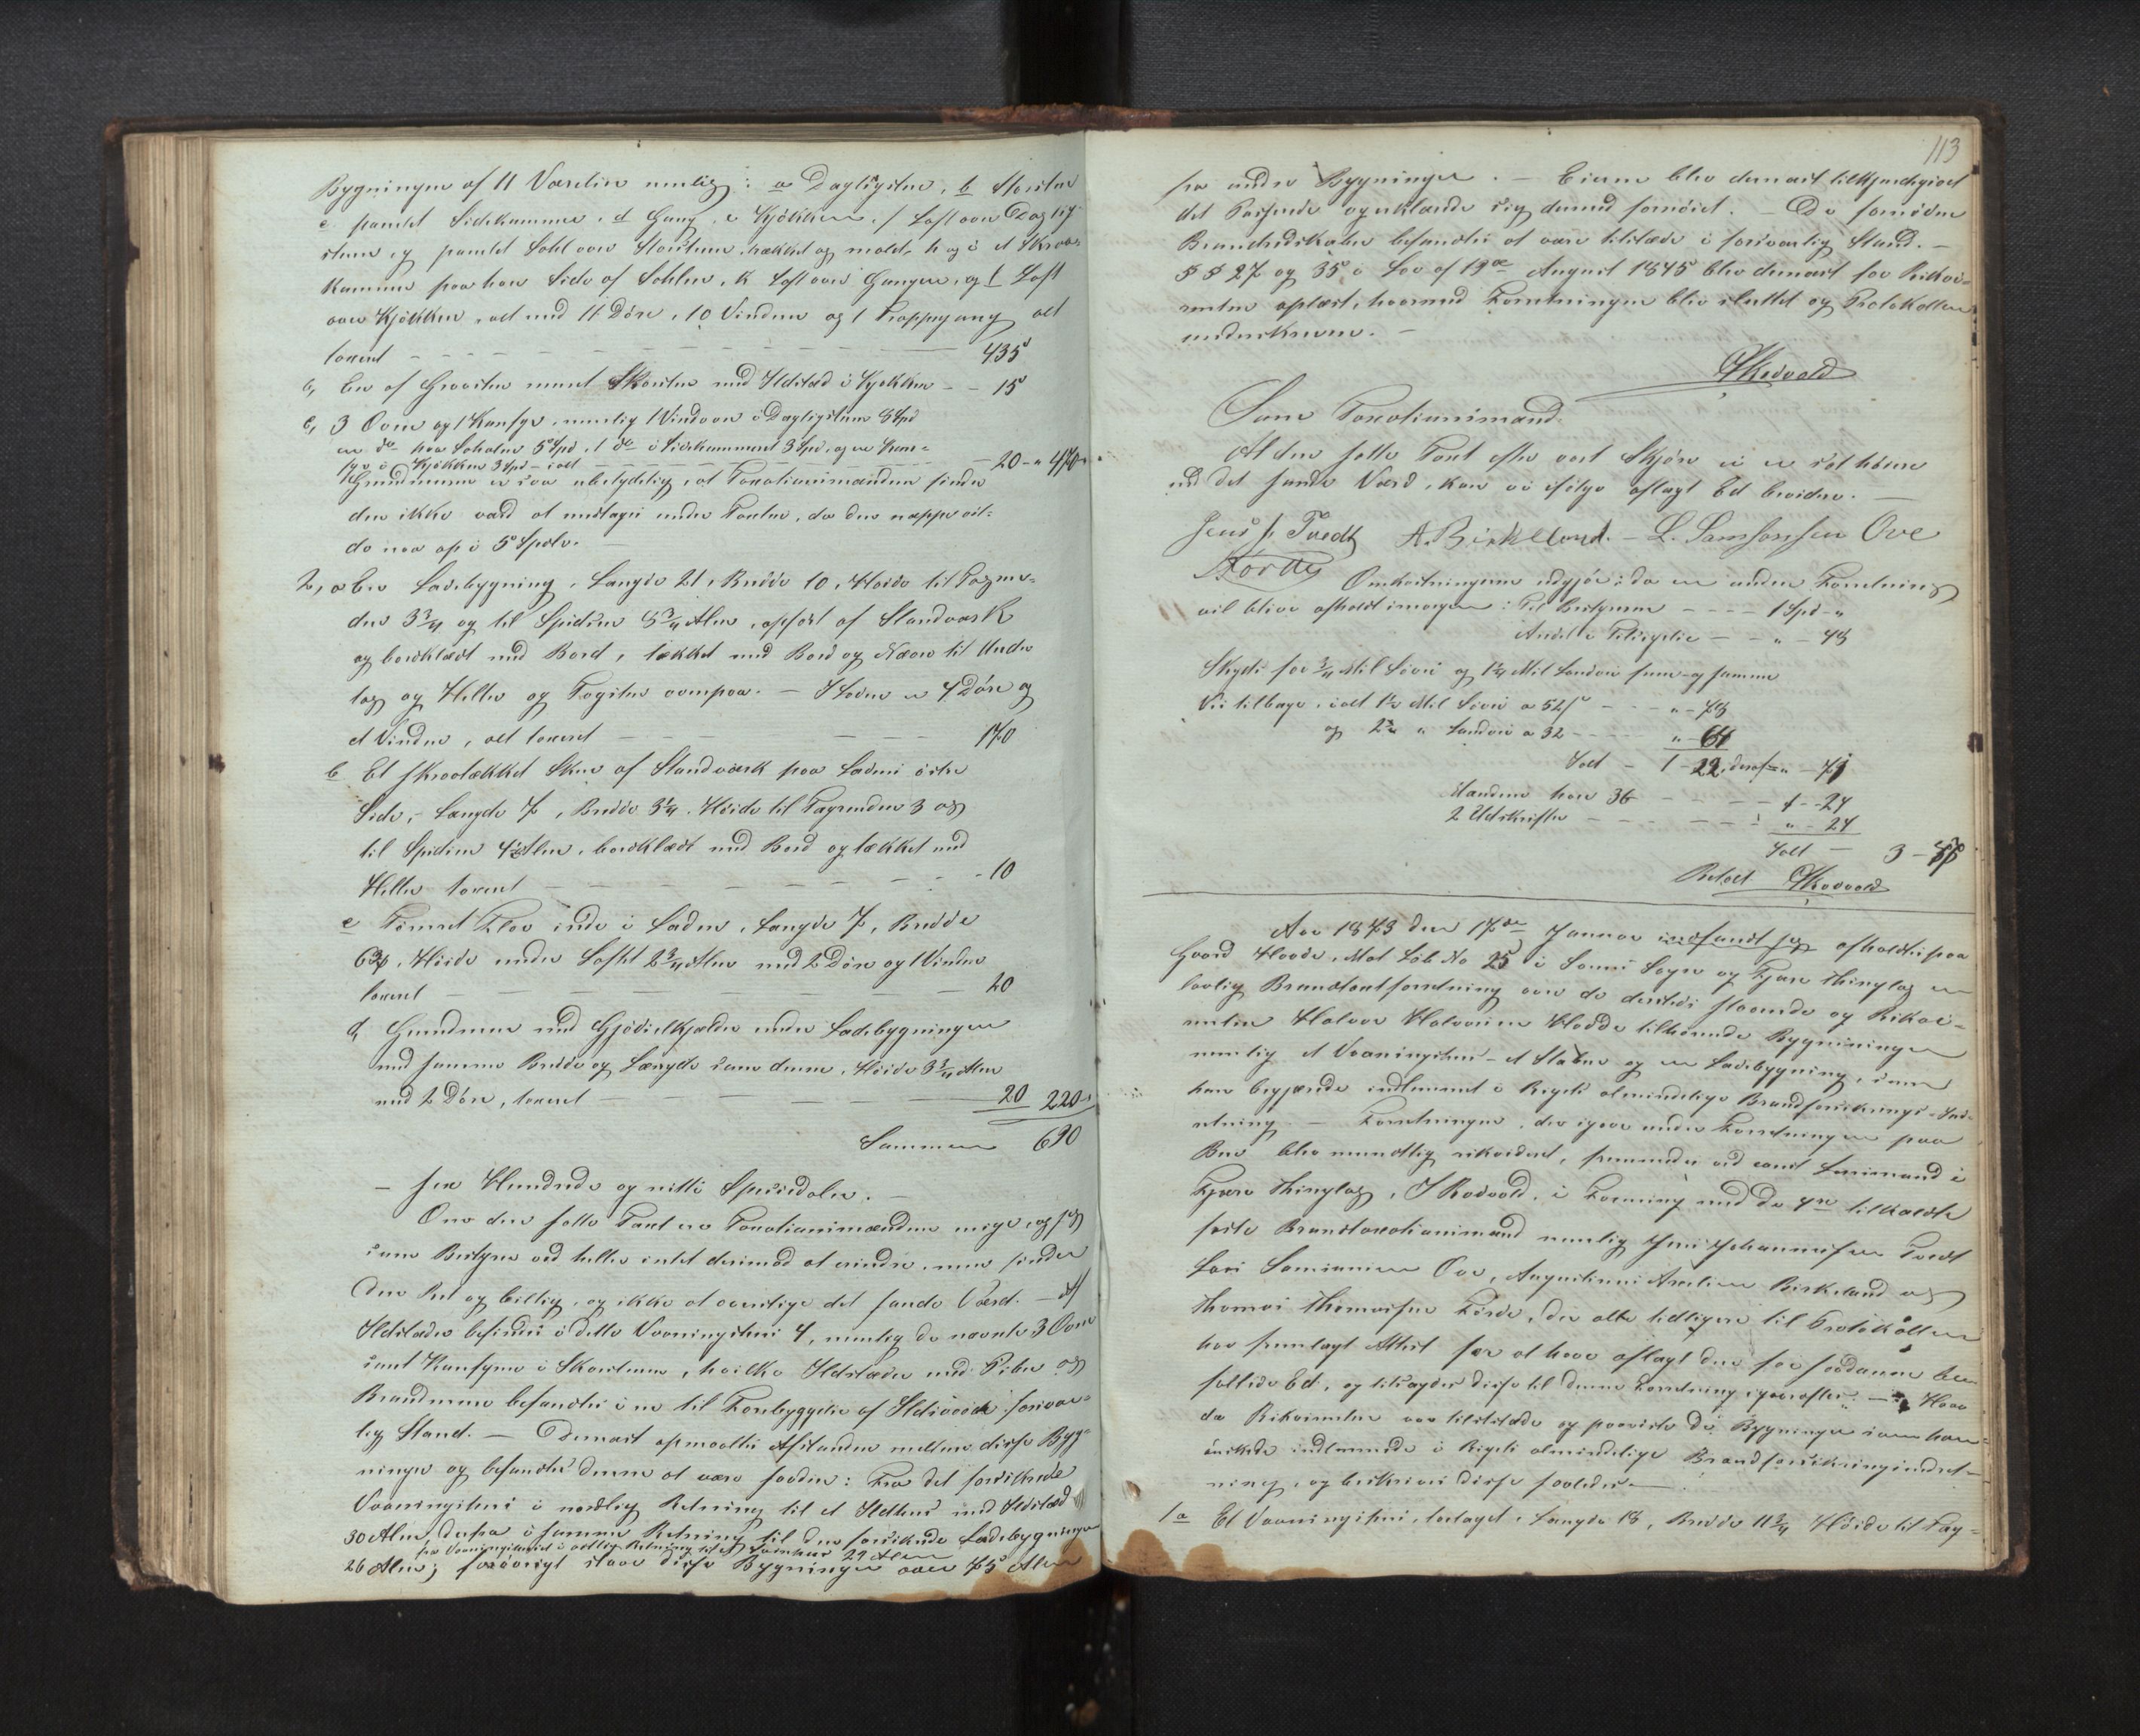 Bygningen af 11 Værelser nemlig: a Dagligstue, b Storstue
c panelet Sidekammer, d Gang, e Kjøkken, f Loft over Daglig-
stuen, g panelet Sahl over Storstuen, trækket og malet, h og i et Skraa-
kammer paa hver Side af Sahlen, k Loft over Gangen, og l Loft
over Kjøkken, alt med 11 Døre, 10 Vinduer og 1 Trappegang alt
taxeret — 435
b, En af Graasten muret Skorsten med Ildsted i Kjøkken - - 15
c, 3 Ovne og 1 Kamfyr, nemlig 1 Vindovn i Dagligstuen 8 Spd
en do paa Sahalen 5 Spd, 1 do i Sidekammeret 3 Spd, og en Kam-
fyr i Kjøkken 3 Spd - ialt — 20 - " 470 -
Grundmuren er saa ubetydelig, at Taxationsmændene finder
den ikke værd at medtages under Taxten, da den neppe vil-
de naa op i 5 Spdlr. —
2, a En Ladebygning, Længde 21, Bredde 10, Høide til Tagren-
den 3 3/4 og til Spidsen 8 3/4 Alen, opført af Standværk
og bordklædt med Bord, tækket med Bord og Næver til Under
lag og Heller og Tagsten ovenpaa. — I Laden er 4 Døre og
et Vindue, alt taxeret — 170
b Et skraatækket Skur af Standværk paa Ladens østre
Side, - Længde 7, Bredde 3 1/4, Høide til Tagrenden 3 og
til Spidsen 4 1/2 Alen, bordklædt med Bord og tækket med
Heller taxeret — 10
c Tømret Fløe inde i Laden, Længde 7, Bredde
6 3/4, Høide under Loftet 2 3/4 Alen med 2 Døre og 1 Vindue
taxeret — 20
d, Grundmur med Gjødselkjælder under Ladebygningen
med samme Bredde og Længde som denne, Høide 3 3/4 Alen
med 2 Døre, taxeret — 20 220 -
Sammen 690
— sex Hundrede og nitti Speciedaler. —
Om den satte Taxt er Taxationsmændene enige, og jeg
som Bestyrer ved heller intet derimod at erindre, men finder
den Ret og billig, og ikke at overstige det sande Værd. — Af
Ildsteder befindes i dette Vaaningshuus 4, nemlig de nævnte 3 Ovne
samt Kamfyren i Skorstenen, hvilke Ildsteder med Piber og
Brandmure befandtes i en til Forebyggelse af Ildsvaade forsvar-
lig Stand. — Dernæst opmaaltes Afstanden mellem disse Byg-
ninger og befandtes denne at være saadan: Fra det forsikrede
Vaaningshuus i nordlig Retning til et Ildhus med Ildsted
30 Alen, derfra i samme Retning til den forsikrede Ladebygning
fra Vaaningshuset i østlig Retning til et Tømhuus 29 Alen
26 Alen; forøvrigt staar disse Bygninger over 75 Alen
113
fra andre Bygninger. — Eieren blev dernæst tilkjendegivet
det Passerede og erklærede sig dermed fornøiet. — De fornødne
Brandredskaber befandtes at være tilstede i forsvarlig Stand. —
§ § 27 og 35 i Lov af 19de August 1845 blev dernæst for Rekvi-
renten oplæst, hvormed Forretningen blev sluttet og Protokollen
underskreven. —
I Rødvold
Som Taxationsmænd
At den satte Taxt efter vort Skjøn ei er sat høiere
end det sande Værd, kan vi ifølge aflagt Ed bevidne. —
Jens J. Tvedt A. Birkeland. — L. Samsonsen Ove
Førde
Omkostningerne udgjør, da en anden Forretning
vil blive afholdt imorgen: Til Bestyreren - - - - 1 Spd - "
Andel i Tilsigelse - - " - 48
Skyds for 3/4 Mil Søvei og 1 1/4 Mil Landvei frem og samme
Vei tilbage, ialt 1 1/2 Mil Søvei a 52 s - - - " - 78
og 2 1/2 " Landvei a 32 - - - - " - 64
Ialt - 1 - 22, deraf 1/2 " - 71
Mændene hver 36 - - - - 1 - 24
2 Udskrifter - - - - - - " - 24
Ialt —
Betalt I Rødvold
Aar 1873 den 17de Januar afholdtes paa
Gaard Hovde, Mat Løb No 25 i Sogn og Fjære Thinglag en
lovlig Brandtaxtforretning over de dersteds staaende og Rekvi-
renten Halvor Halvorsen Hovde tilhørende Bygninger
nemlig et Vaaningshus - et Stabur og en Ladebygning, som
han begjærede indlemmet i Rigets almindelige Brandforsikrings-Ind-
retning. — Forretningen, der igaar under Forretningen paa
blev mundtlig rekvireret, fremmedes ved const Lensmand i
Fjære Thinglag, I Rødvold, i Forening med de 4re tilkaldte
faste Brandtaxationsmænd nemlig Jens Johannesen Tvedt
Lars Samsonsen Ove, Augustinus Birkeland og
Thomas Thomassen Førde, der alle tidligere til Protokollen
har fremlagt Attest for at have aflagt den for saadanne be-
falede Ed, og tilsagdes disse til denne Forretning igaaraftes. — Hvor
da Rekvirenten var tilstede og paaviste de Bygninger som han
ønskede indlemmede i Rigets almindelige Brandforsikringsindret-
ning, og beskrives disse saaledes —
1 a Et Vaaningshuus, Længde 18, Bredde 11 3/4 Høide til Tag-